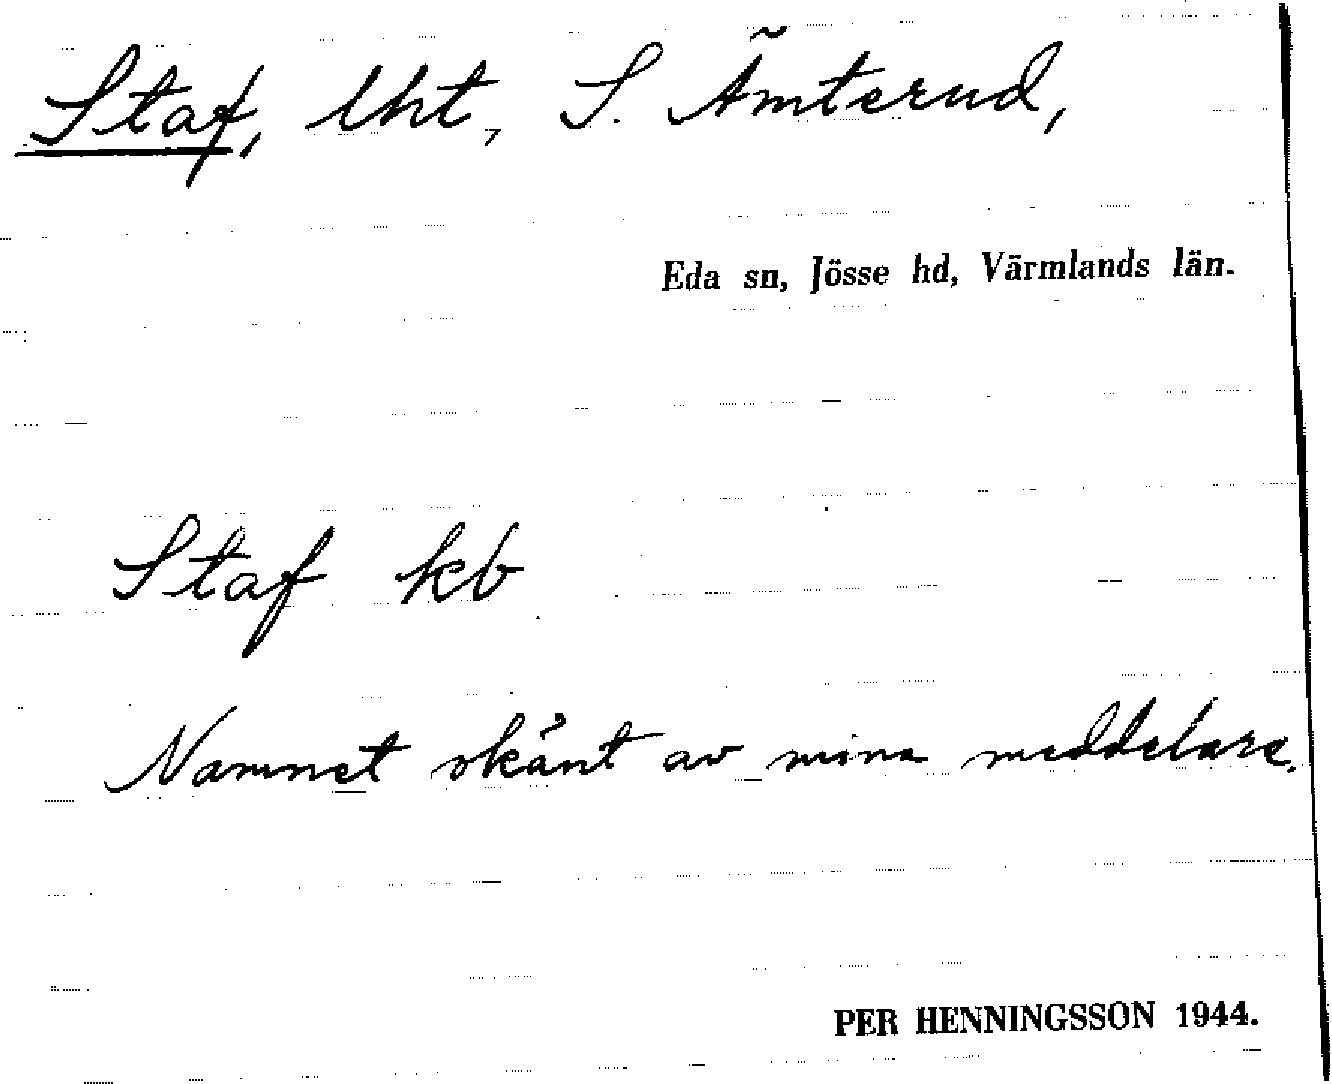 Staf, lht, S. Ämterud,
Eda sn, Jösse hd, Värmlands län.
Staf kb
Namnet okänt av mina meddelare.
PER HENNINGSSON 1944.